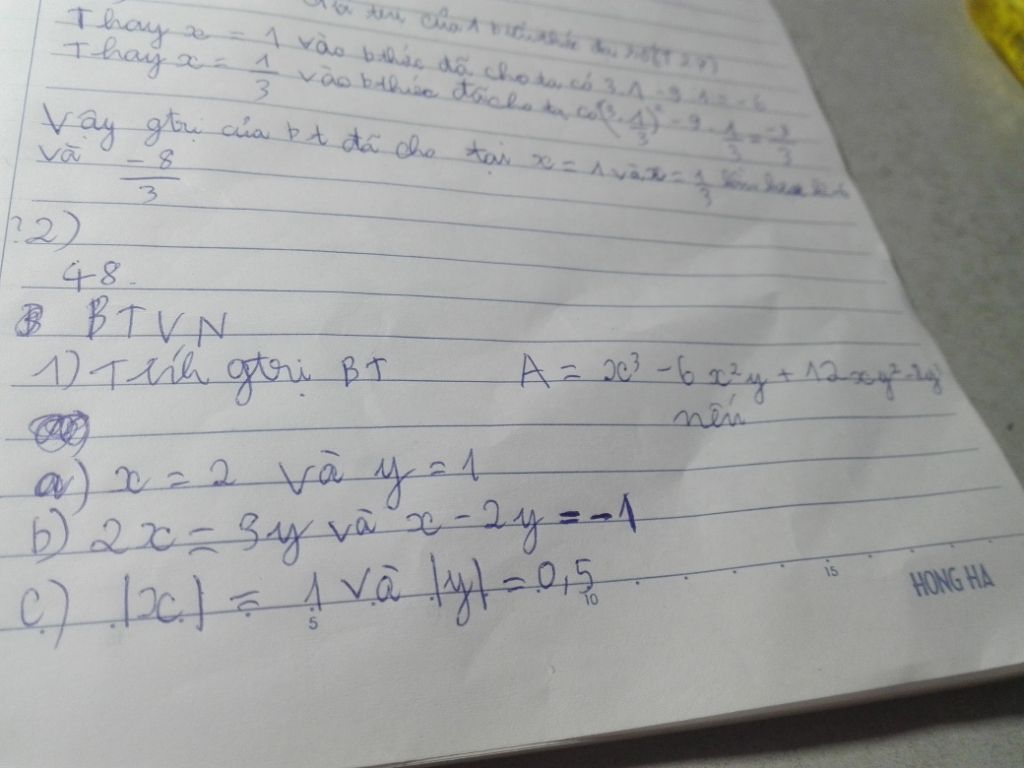 của 1
Thay x = 1 vào bthức đã cho ta có 3.1 - 9.1 = -6
Thay x = 1/3 vào bthức đã cho ta có (3.1/3)² - 9.1/3 =
Vậy gtrị của bt đã cho tại x = 1 và x = 1/3
và -8/3
?2)
48.
BTVN
1) Tính gtrị BT A = x³ - 6x²y + 12xy²
nếu
a) x = 2 và y = 1
b) 2x = 3y và x - 2y = -1
c) |x| = 1 và |y| = 0,5
5 10 15 HONG HA